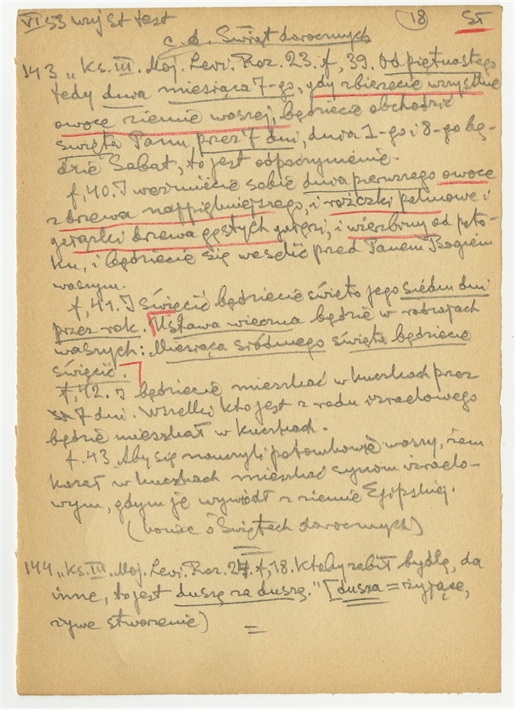 VI 53 wyj St test
18
ST
c.d. Świąt dorocznych
143 „Ks. III. Moj. Levi. Roz. 23. f, 39. Od piętnastego
tedy dnia miesiąca 7-go, gdy zbierzecie wszystkie
owoce ziemie waszej, będziecie obchodzić
święta Panu, przez 7 dni, dnia 1-go i 8-go bę-
dzie Sabat, to jest odpocznienie.
f, 40. I weźmiecie sobie dnia pierwszego owoce
z drzewa najpiękniejszego, i rószczki palmowe i
gałązki drzewa gęstych gałęzi, i wierzbiny od poto-
ku, i będziecie się weselić przed Panem Bogiem
waszym.
f, 41. I święcić będziecie święto jego siedm dni
przez rok. Ustawa wieczna będzie w rodzajach
waszych: Miesiąca siódmego święta będziecie
święcić.
f, 42. I będziecie mieszkać w kuczkach przez
7 dni. Wszelki kto jest z rodu izraelowego
będzie mieszkał w kuczkach.
f. 43 Aby się nauczyli potomkowie waszy, żem
kazał w kuczkach mieszkać synom izraelo-
wym, gdym je wywiódł z ziemie Egipskiej.
(koniec o Świętach dorocznych)
144. Ks. III. Moj. Levi. Roz. 24. f, 18. Któryby zabił bydlę, da
inne, to jest duszę za duszę." [dusza = żyjące,
żywe stworzenie)